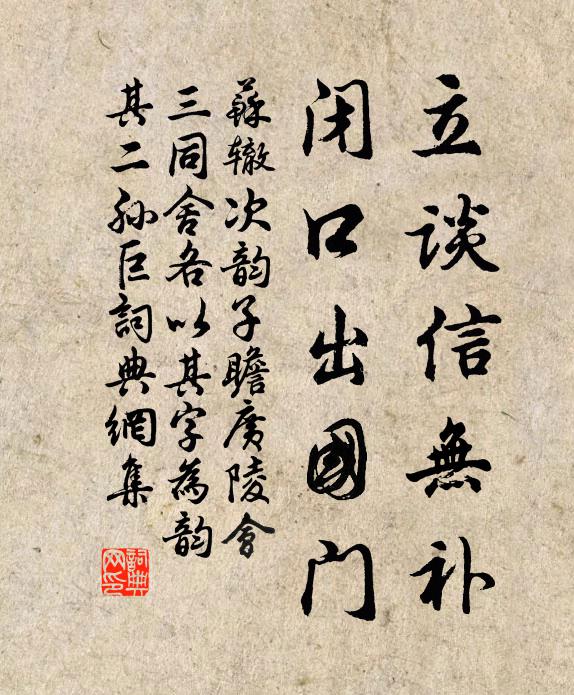 立谈信無补
闭口出國门
蘇辙次韵子瞻廣陵會
三同舍各以其字為韵
其二孙巨詞典網集
詞典
网印